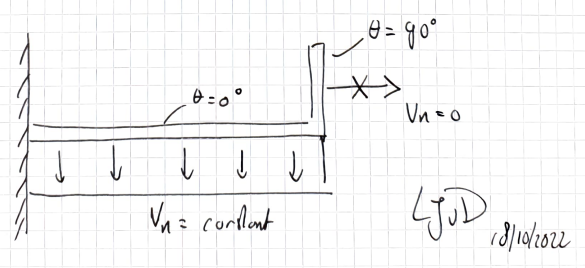 θ = 90°
θ = 0°
Vn = 0
Vn = constant
LJVD
18/10/2022